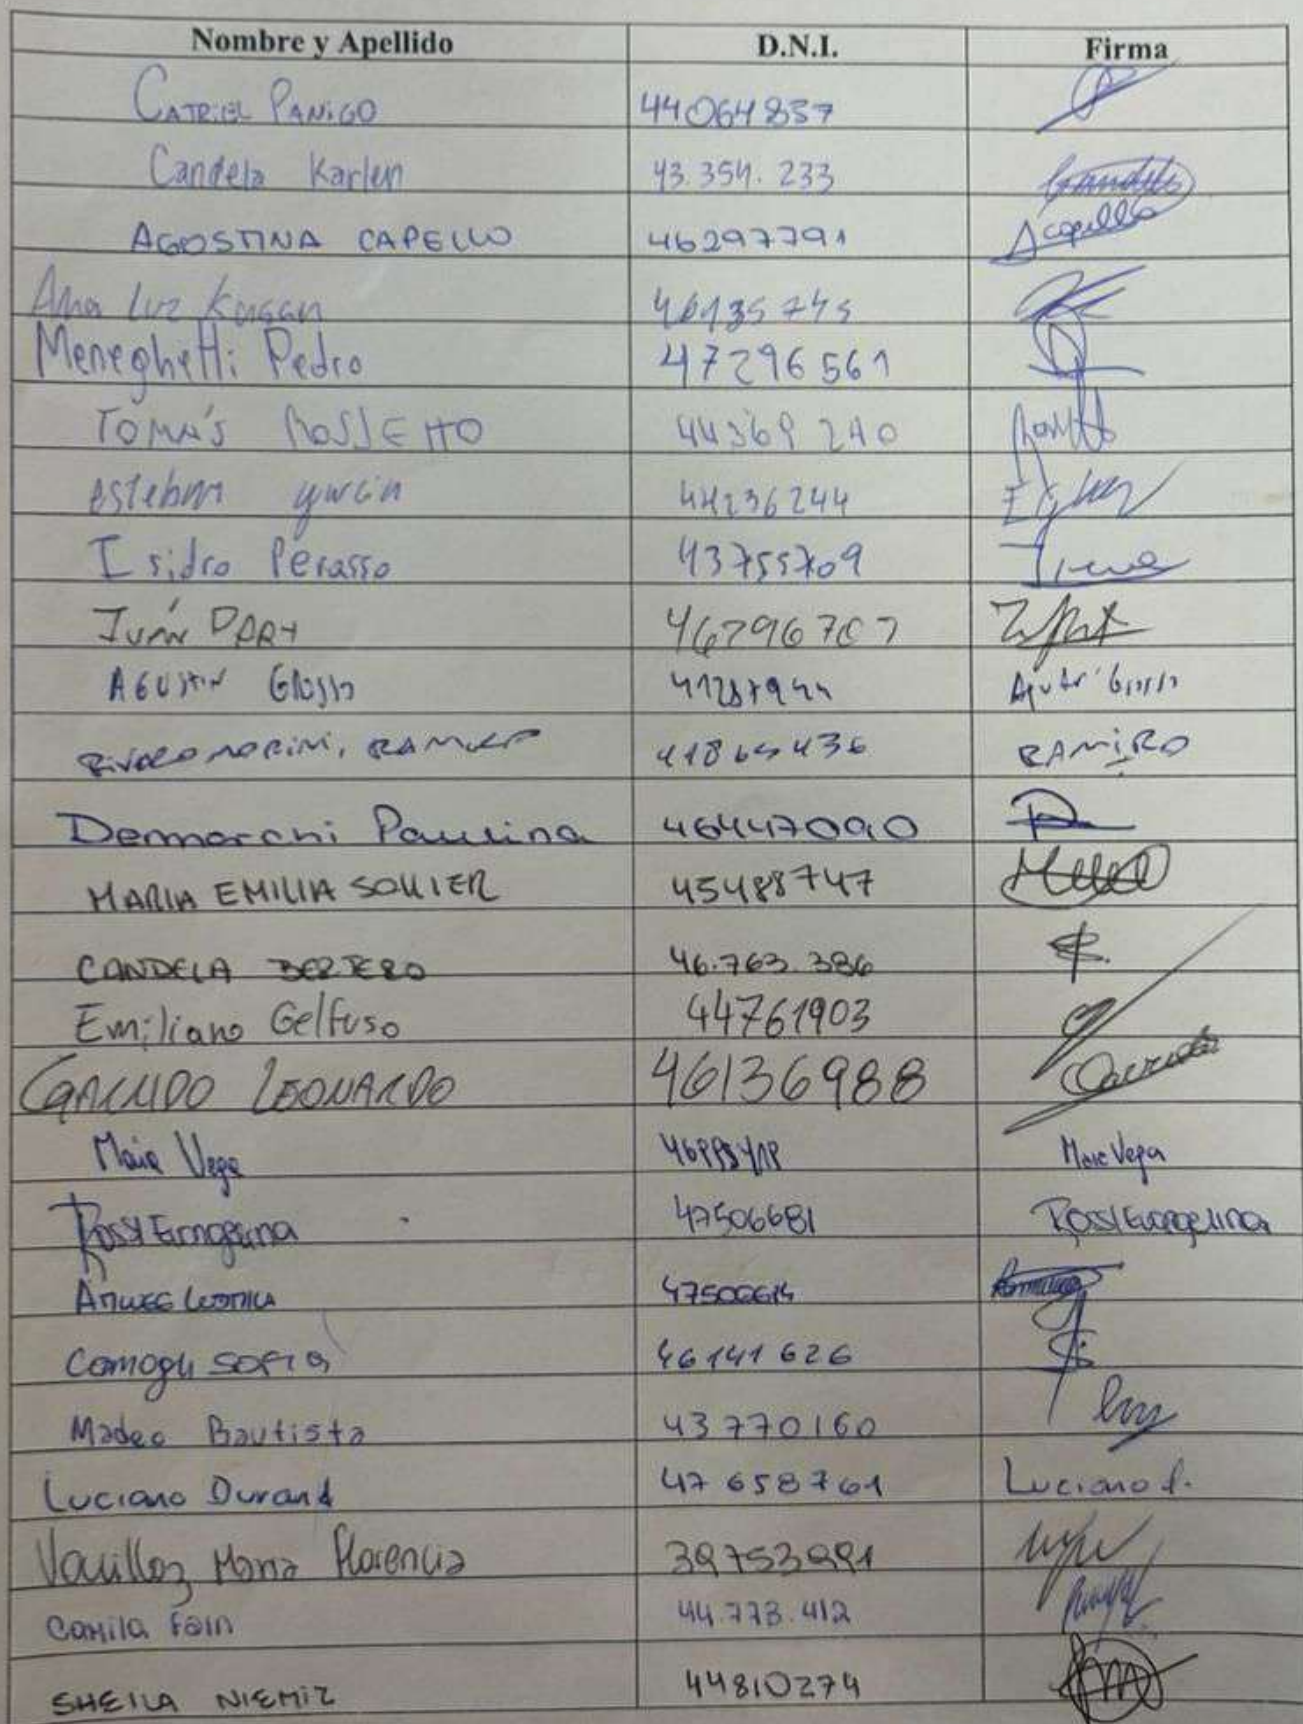 Nombre y Apellido D.N.I. Firma
CATRIEL PANIGO 44064837
Candela Karlen 43.354.233 Candela
AGOSTINA CAPELLO 46297791 Acapello
Ana Luz 46135745
Meneghetti Pedro 47296561
TOMÁS ROSSETTO 44369240
esteban 44236244
Isidro Perasso 43755709
46296707
AGUSTIN Grosso
RAMIRO 41865436 RAMIRO
Demarchi Paulina 46447090
MARIA EMILIA SOLLIER 45488747
CANDELA BERTERO 46.763.386
Emiliano Gelfuso 44761903
GARRIDO LEONARDO 46136988
Maia Vega Maia Vega
Rossi Evangelina 47506681 Rossi Evangelina
47506614
Comogli SOFIA 46141626
Madeo Bautista 43770160
Luciano Durand 47658761 Luciano D.
Vouilloz Maria Florencia 39753991
Camila Fain 44.773.412
SHEILA NIEMIZ 44810274